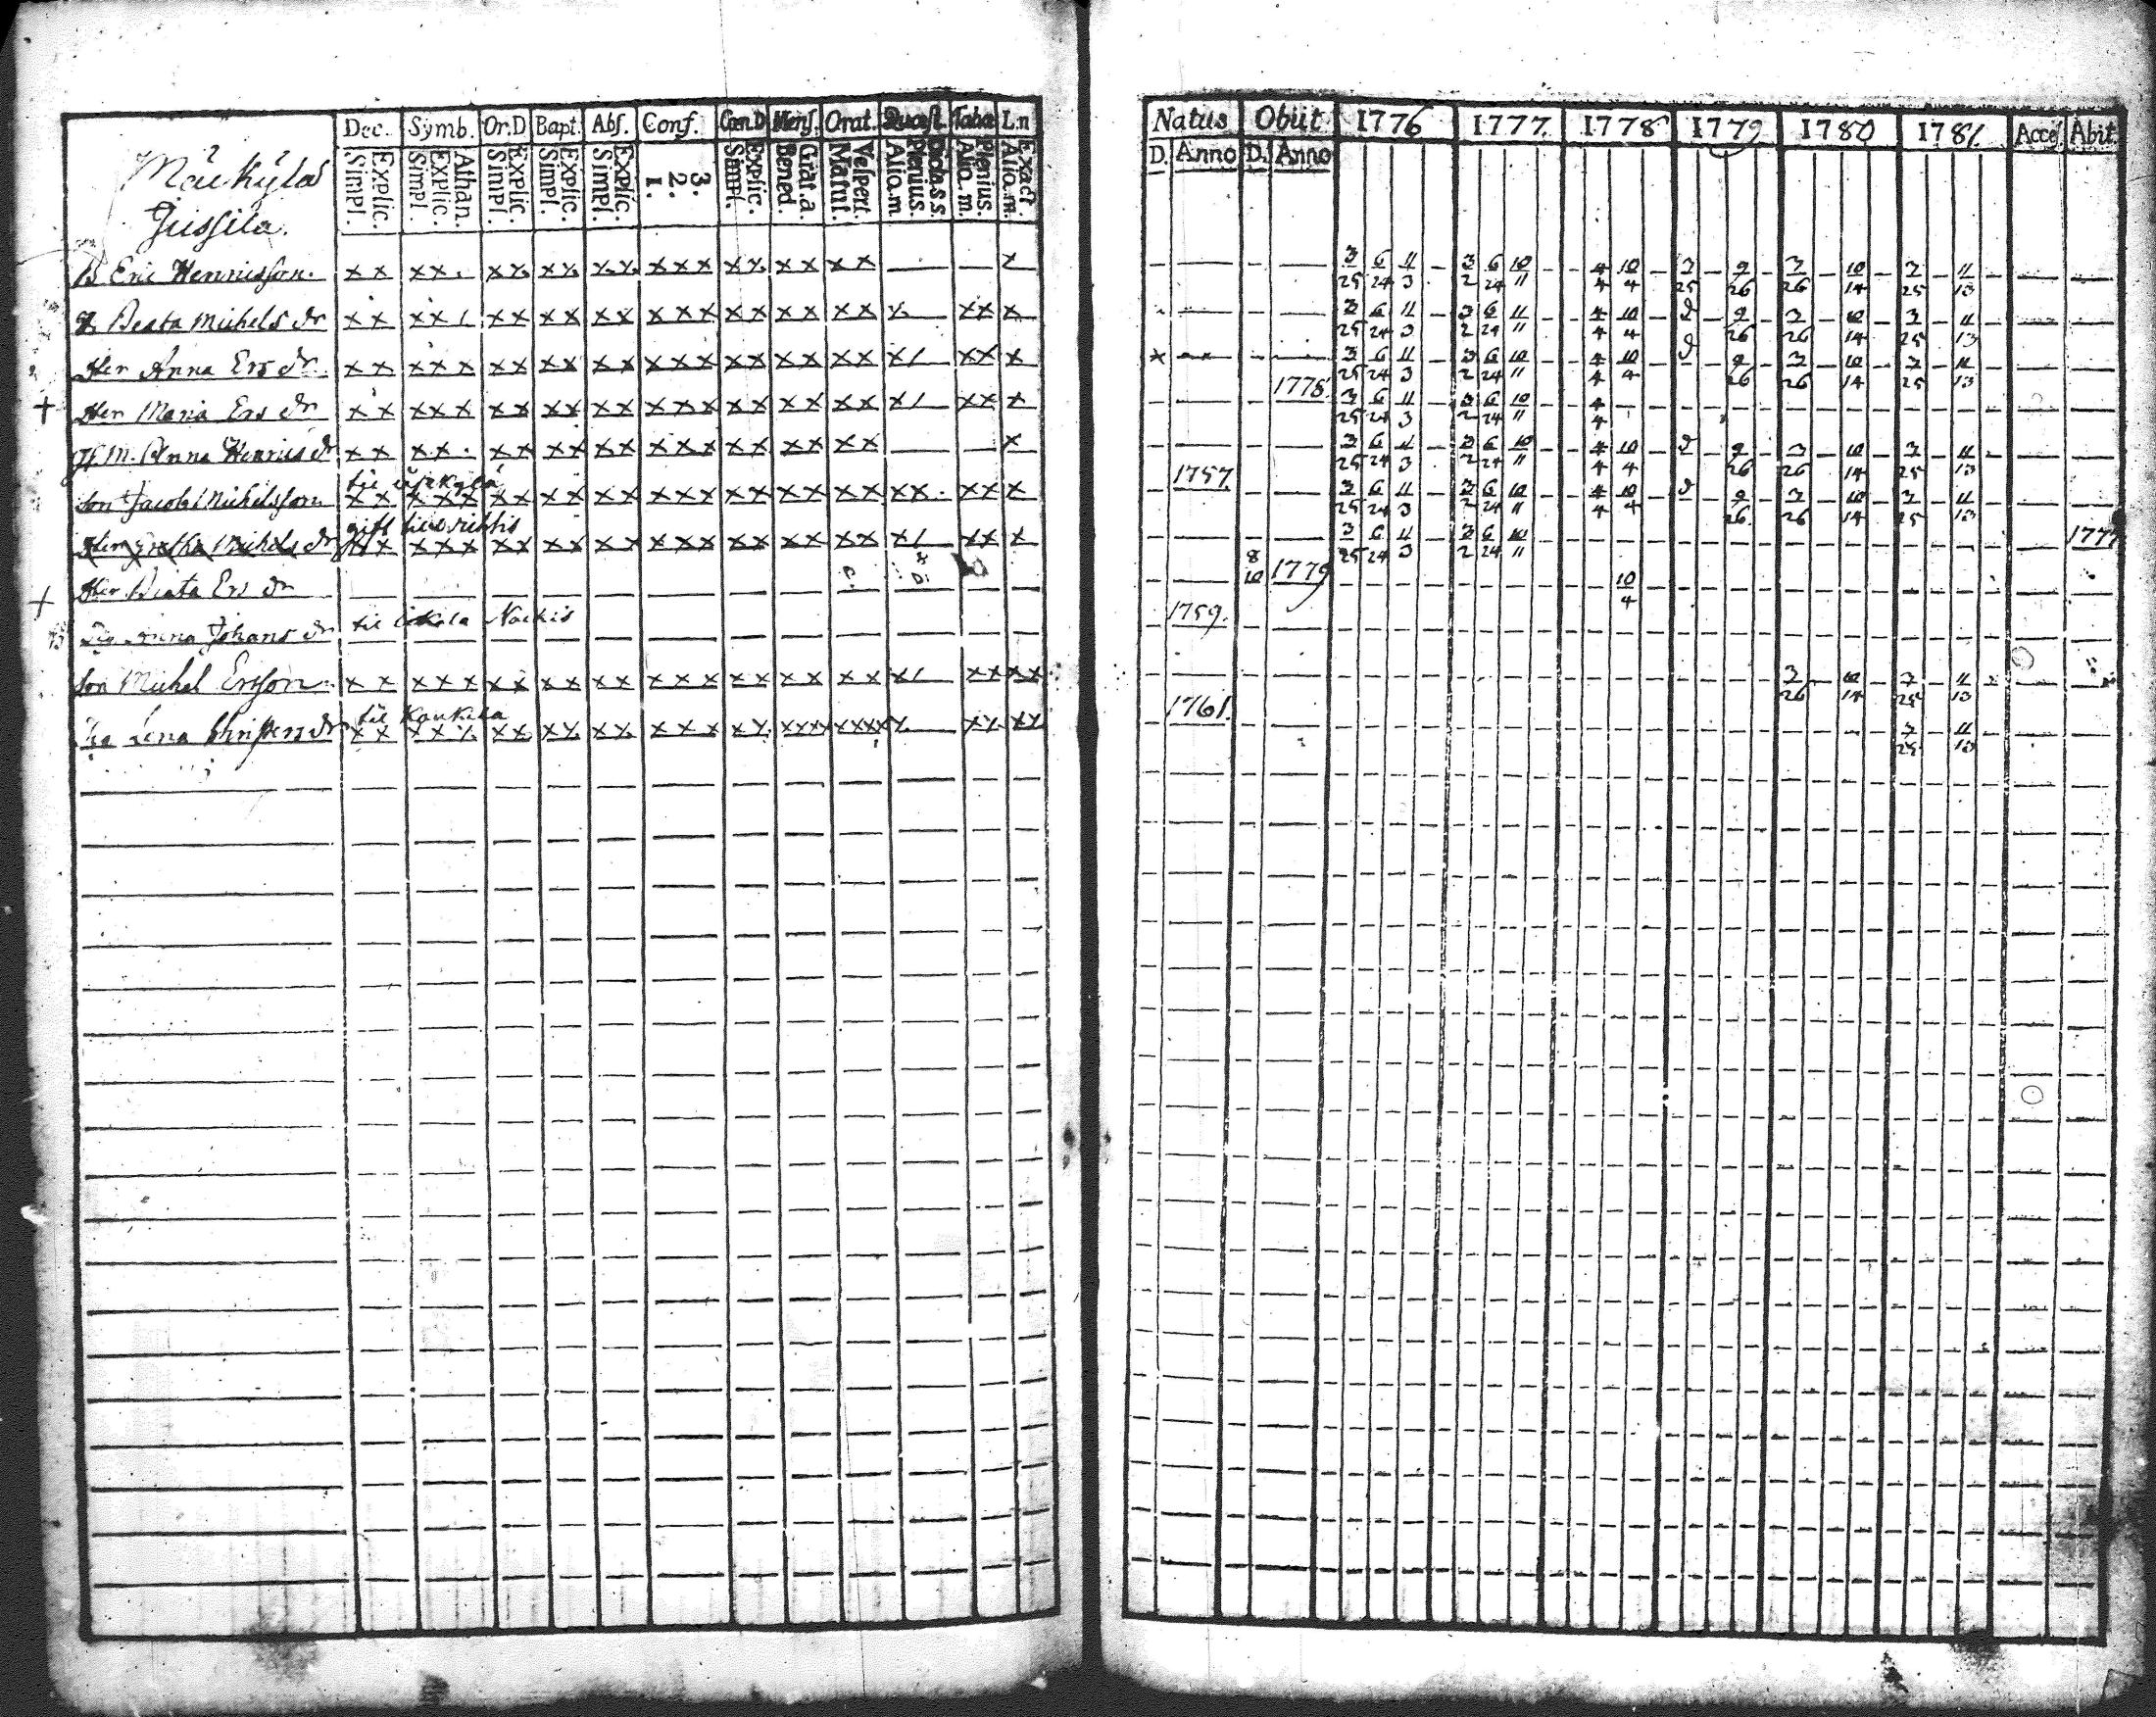 Mäukylä
Jussila.
Dec. Symb. Or.D Bapt. Abs. Conf. Cœn.D Mens. Orat. Quæst. Tabæ L.n
Simpl. Explic. Simpl. Explic. Athan. Simpl. Explic. Simpl. Explic. Simpl. Explic. 1. 2. 3. Simpl. Explic. Bened. Grat. a. Matut. Vespert. Alio.m. Plenius. Dicta s.s. Alio.m. Plenius. Alio.m. Exact.
B Eric Henricsson. x x x x . x x x x x x x x x x x x x x x x
H Beata Michels dr x x x x / x x x x x x x x x x x x x x x x x x x
Her Anna Ers dr x x x x x x x x x x x x x x x x x x x x x / x x x
+ Her Maria Ers dr x x x x x x x x x x x x x x x x x x x x x / x x x
H M. Anna Henrics dr x x x x . x x x x x x x x x x x x x x x x
son Jacob Michelsson x x x x x x x x x x x x x x x x x x x x x x . x x x
gift til
Her Gretha Michels dr x x x x x x x x x x x x x x x x x x x x x / x x x
+ Her Beata Ers dr
til
Anna Johans dr
son Michel Ersson x x x x x x x x x x x x x x x x x x x x x / x x x x
til Kaukila
Lena Christers dr x x x x x x x x x x x x x x x x x x x x x x x x x x x x
Natus Obiit 1776 1777. 1778 1779 1780 1781. Acces. Abit.
D. Anno D. Anno
3 6 11 3 6 10 4 10 3 9 3 10 3 11
25 24 3 2 24 11 4 4 25 26 26 14 25 13
3 6 11 3 6 11 4 10 d 9 3 10 3 11
25 24 3 2 24 11 4 4 26 26 14 25 13
x 3 6 11 3 6 10 4 10 d 9 3 10 3 11
25 24 3 2 24 11 4 4 26 26 14 25 13
1778. 3 6 11 3 6 10 4
25 24 3 2 24 11 4
3 6 11 3 6 10 4 10 d 9 3 10 3 11
25 24 3 2 24 11 4 4 26 26 14 25 13
1757 3 6 11 3 6 10 4 10 d 9 3 10 3 11
25 24 3 2 24 11 4 4 26 26 14 25 13
3 6 11 3 6 10 1777
25 24 3 2 24 11
8 1779 10
10 4
1759.
3 10 3 11
26 14 25 13
1761. 3 11
25 13